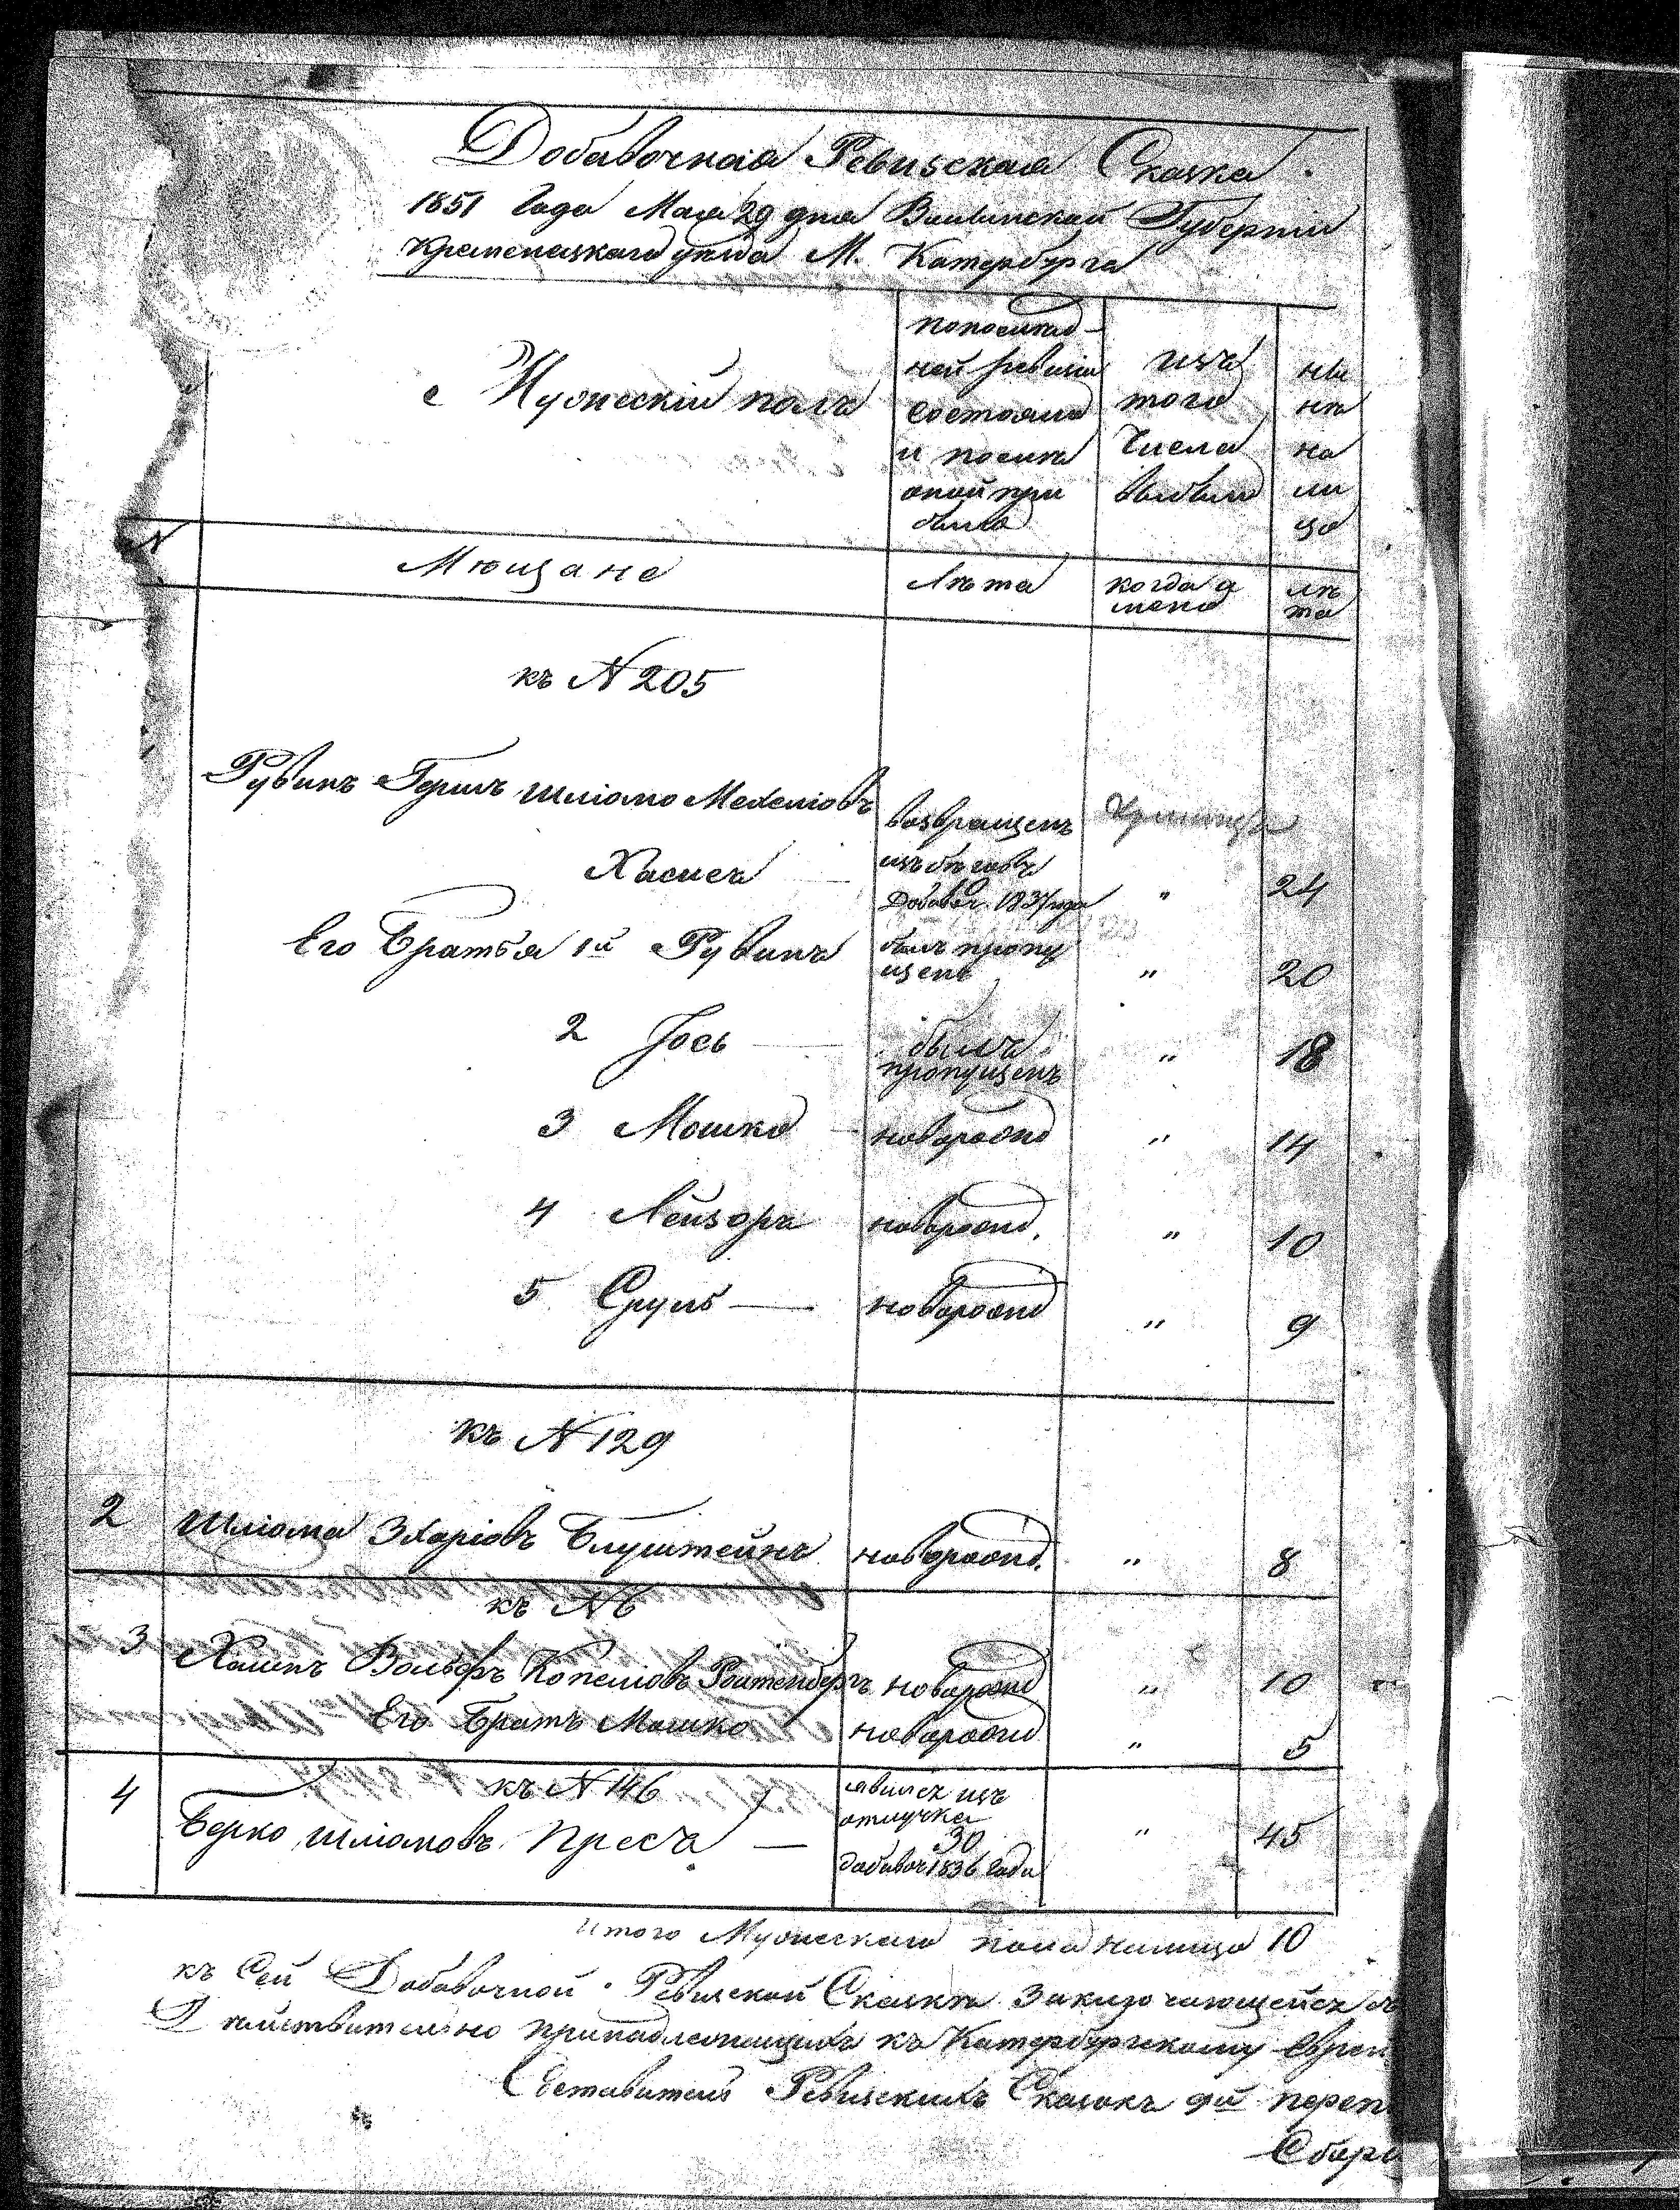 Добавочная Ревизская Сказка.
1851 Года Мая 29 дня Волынской Губернии
Кременецкаго уезда М. Катербурга
Мужеский полъ
попослед-
ней ревизии
состояло
и после
оной при
было
изъ
того
числа
выбыло
ны
не
на
ли
цо
N
Мющане
Лѣта
когда и
менно
лѣ
та
къ N 205
Рувинъ Гершъ Шліомо Мехеліовъ
возвращенъ
Хаскель
изъ бѣговъ
добавоч. 1837 года
"
24
Его Братья 1й Рувинъ
былъ пропу
щенъ
"
20
2 Іось
былъ
пропущенъ
"
18
3 Мошко
новорожд
"
14
4 Лейзоръ
новорожд.
"
10
5 Сруль
новорожд
"
9
къ N 129
2 Шліома Зхаріовъ Блуштейнъ
новорожд.
"
8
къ N 6
3 Хаимъ Вольфъ Копеліовъ Роитенберъ
новорожд
"
10
Его Братъ Мошко
новорожд
"
5
къ N 146
4 Берко Шліомовъ Пресъ
явился изъ
отлучки
30
добавоч 1836 года
"
45
Итого Мужескаго пола налицо 10
къ Сей Добавочной Ревизской Сказкѣ Заключающейся
Действительно принадлежащихъ къ Катербургскому Еврей
Составитель Ревизскихъ Сказокъ 9й переп
Сбор